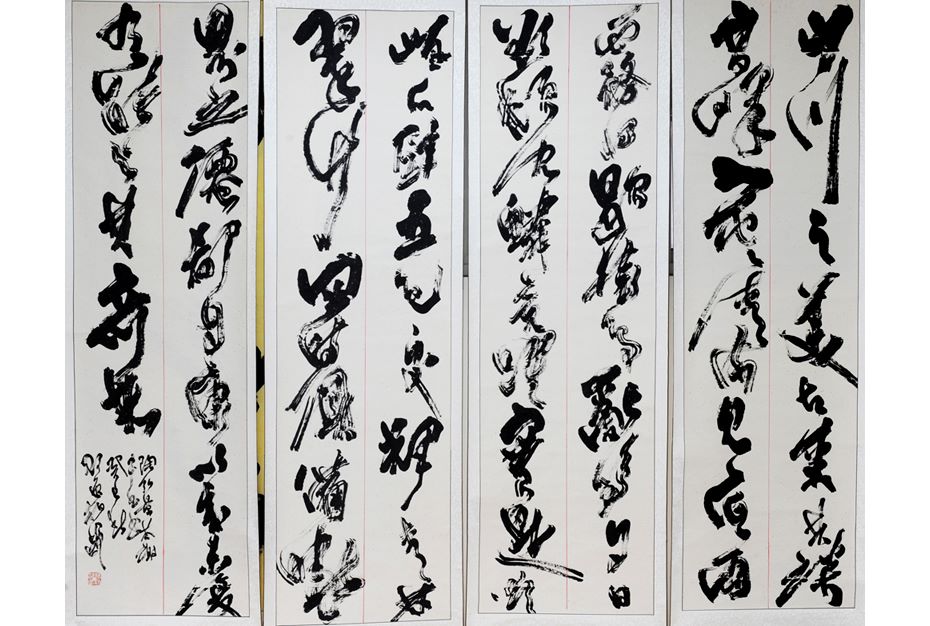 山川之美古來共談
高峰入雲清流見底兩
岸石壁五色交輝青林
翠竹四時俱備曉
霧將歇猿鳥亂鳴夕日
欲頹沉鱗競躍實是欲
界之仙都自康樂以來未復
有能與其奇者